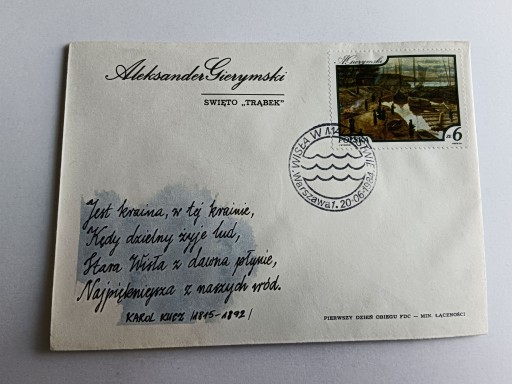 Aleksander Gierymski
ŚWIĘTO „TRĄBEK”
A. Gierymski
POLSKA
zł 6
WISŁA W MALARSTWIE
Warszawa 1. 20-06-198
Jest kraina, w tej krainie,
Kędy dzielny żyje lud,
Stara Wisła z dawna płynie,
Najpiękniejsza z naszych wód.
KAROL KUCZ /1815-1892/
PIERWSZY DZIEŃ OBIEGU FDC — MIN. ŁĄCZNOŚCI